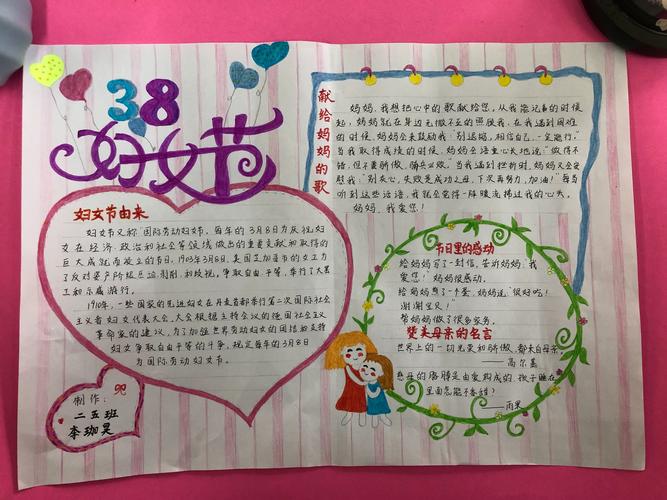 38
妇女节
妇女节由来
妇女节又称"国际劳动妇女节，每年的3月8为庆祝妇
女在经济、政治和社会等领域做出的重要贡献和取得的
巨大成就而设立的节日。1903年3月8日，美国芝加哥市的女工为
了反对资产阶级压迫、剥削、和歧视，争取自由、平等，举行了大罢
工和示威游行。
1910年，一些国家的先进妇女在丹麦首都举行第二次国际社会
主义者妇女代表大会，大会根据主持会议的德国社会主义
革命家的建议，为了加强世界劳动妇女的团结和支持
妇女争取自由平等的斗争，规定每年的3月8日
为国际劳动妇女节。
制作：
二五班
李珈昊
献给妈妈的歌
妈妈，我想把心中的歌献给您，从我能记事的时候
起，妈妈就在身边无微不至的照顾我，在我遇到困难
的时候，妈妈会来鼓励我："别退缩，相信自己，一定能行。"
当我取得成绩的时候，妈妈会语重心长地说："做得不
错，但不要骄傲，骄兵必败。"当我遇到挫折时，妈妈又会安
慰我："别灰心，失败是成功之母，下次再努力，加油！"每当
听到这些话语，我就会觉得一阵暖流拂过我的心头。
妈妈，我爱您！
节日里的感动
给妈妈写了一封信，告诉妈妈"我
爱您！"妈妈很感动。
给妈妈想了一个套，妈妈说"很好吃！
谢谢宝贝！
帮妈妈做了很多家务。
赞美母亲的名言
世界上的一切光荣和骄傲，都来自母亲
——高尔基
慈母的胳膊是由爱构成的，孩子睡在
里面怎能不香甜？
——雨果